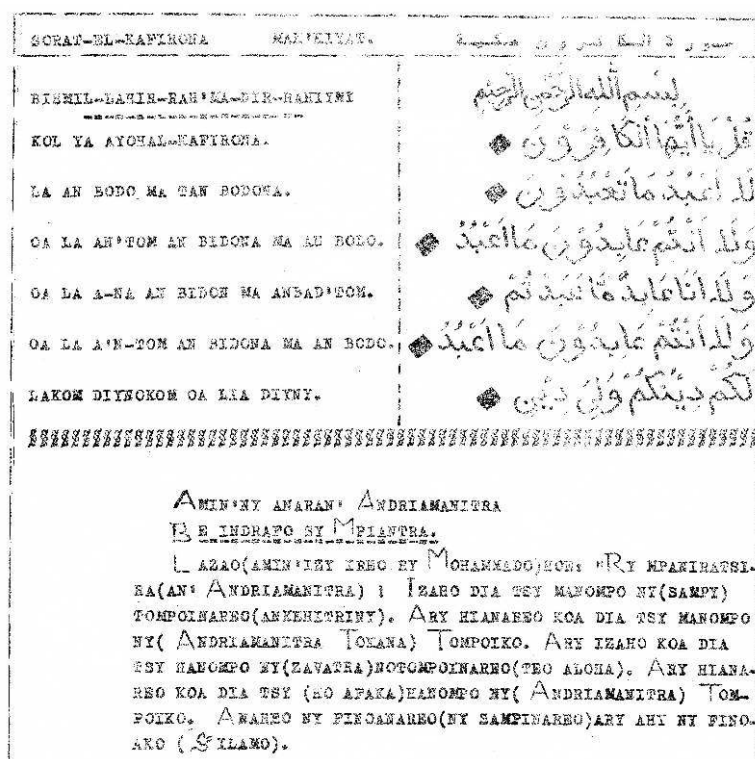 SORAT-EL-KAFIRONA MAK'KIYAT.
سورة الكافرون مكية
BISMIL-LAHIR-RAH'MA-NIR-RAHIYMI
KOL YA AYOHAL-KAFIRONA.
LA AN BODO MA TAN BODONA.
OA LA AN'TOM AN BIDONA MA AN BODO.
OA LA A-NA AN BIDON MA ANBAD'TOM.
OA LA A'N-TOM AN BIDONA MA AN BODO.
LAKOM DIYNOKOM OA LIA DIYNY.
بِسْمِ اللَّهِ الرَّحْمٰنِ الرَّحِيْمِ
قُلْ يَا أَيُّهَا ٱلْكَافِرُوْنَ
لَا أَعْبُدُ مَا تَعْبُدُوْنَ
وَلَا أَنْتُمْ عَابِدُوْنَ مَا أَعْبُدُ
وَلَا أَنَا عَابِدٌ مَّا عَبَدْتُّمْ
وَلَا أَنْتُمْ عَابِدُوْنَ مَا أَعْبُدُ
لَكُمْ دِيْنُكُمْ وَلِيَ دِيْنِ
AMIN'NY ANARAN' ANDRIAMANITRA
BE INDRAFO SY MPIANTRA.
LAZAO(AMIN'IZY IREO RY MOHAMMADO)HOE: "RY MPANIRATSI-
RA(AN' ANDRIAMANITRA) ! IZAHO DIA TSY MANOMPO NY(SAMPY)
TOMPOINAREO(ANKEHITRINY). ARY HIANAREO KOA DIA TSY MANOMPO
NY( ANDRIAMANITRA TOKANA) TOMPOIKO. ARY IZAHO KOA DIA
TSY MANOMPO NY(ZAVATRA)NOTOMPOINAREO(TEO ALOHA). ARY HIANA-
REO KOA DIA TSY (HO AFAKA)MANOMPO NY( ANDRIAMANITRA) TOM-
POIKO. ANAREO NY FINOANAREO(NY SAMPINAREO)ARY AHY NY FINO-
AKO ( SILAMO).